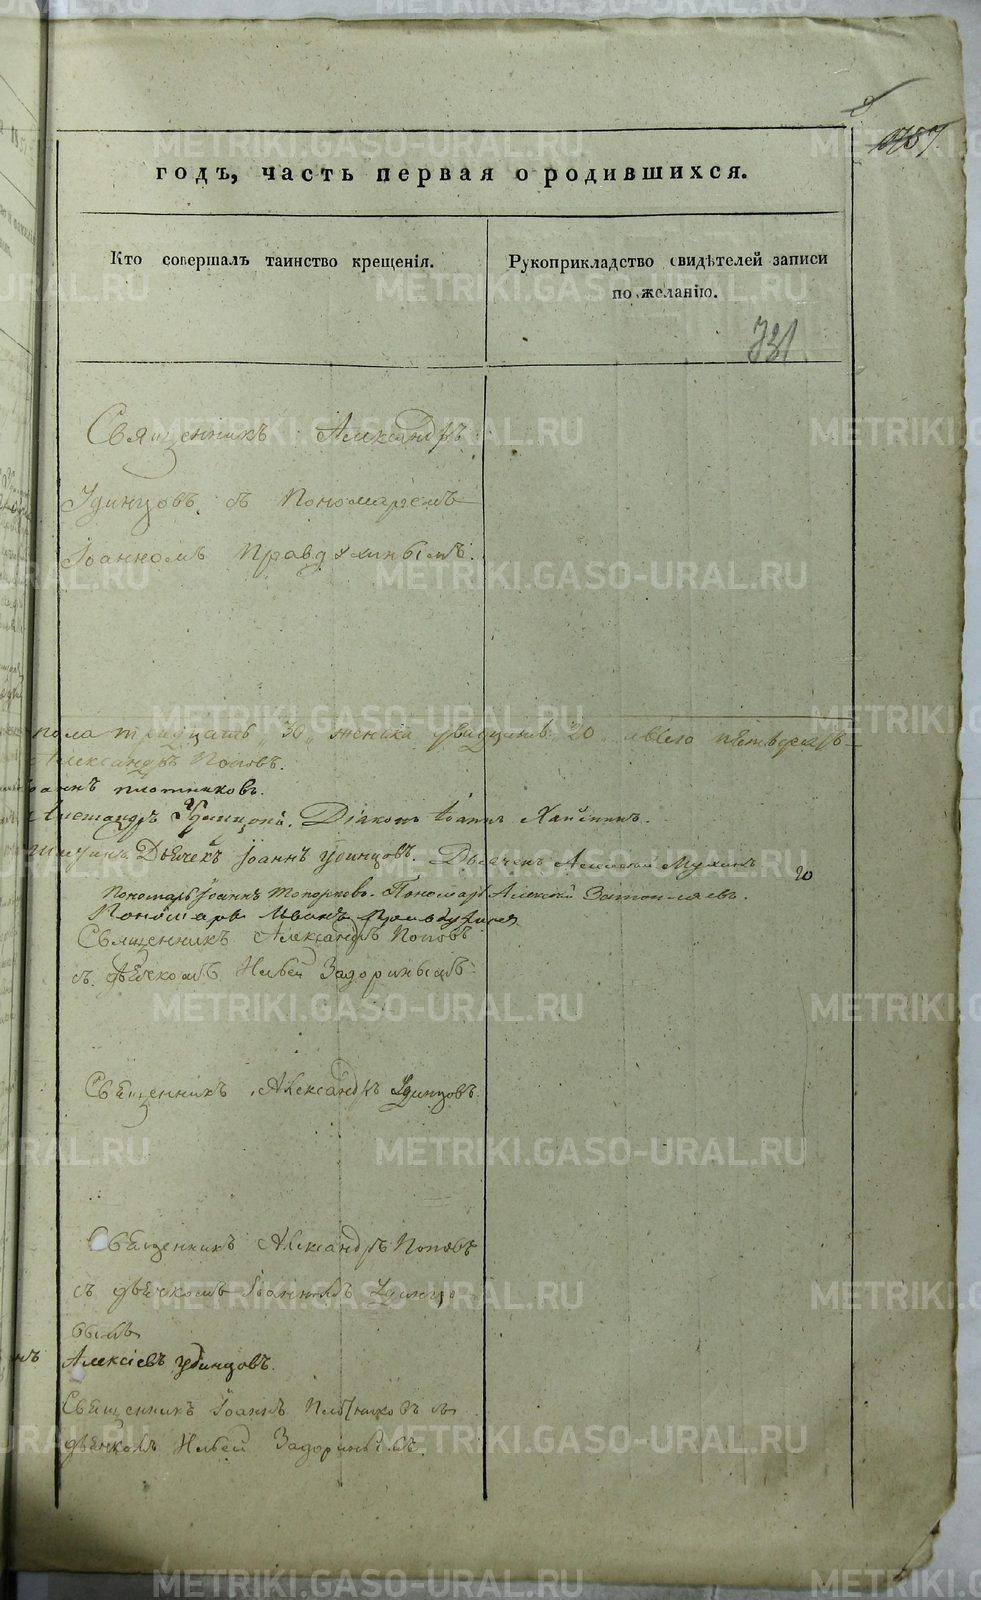 годъ, часть первая о родившихся.
Кто совершалъ таинство крещенія.
Рукоприкладство свидѣтелей записи
по желанію.
731
Священникъ Александръ
Удинцовъ съ Пономаремъ
Іоанномъ Правдухинымъ.
пола тридцать „30„ женска двадцать „20„
Александръ Поповъ.
Плотниковъ.
Удинцовъ. Діаконъ Іоаннъ
Дьячекъ Іоаннъ Удинцовъ. Дьячекъ Алексей Мухинъ
20
Пономарь Іоаннъ Топорковъ. Пономарь Алексей
Пономарь Иванъ
Священникъ Александръ Поповъ
съ дьячкомъ Задоринымъ.
Священникъ Александръ Удинцовъ.
Священникъ Александръ Поповъ
съ дьячкомъ Іоанномъ Удинцо
вымъ
Алексіевъ Удинцовъ.
Священникъ Іоаннъ Плотниковъ съ
дьячкомъ Задоринымъ.
METRIKI.GASO-URAL.RU